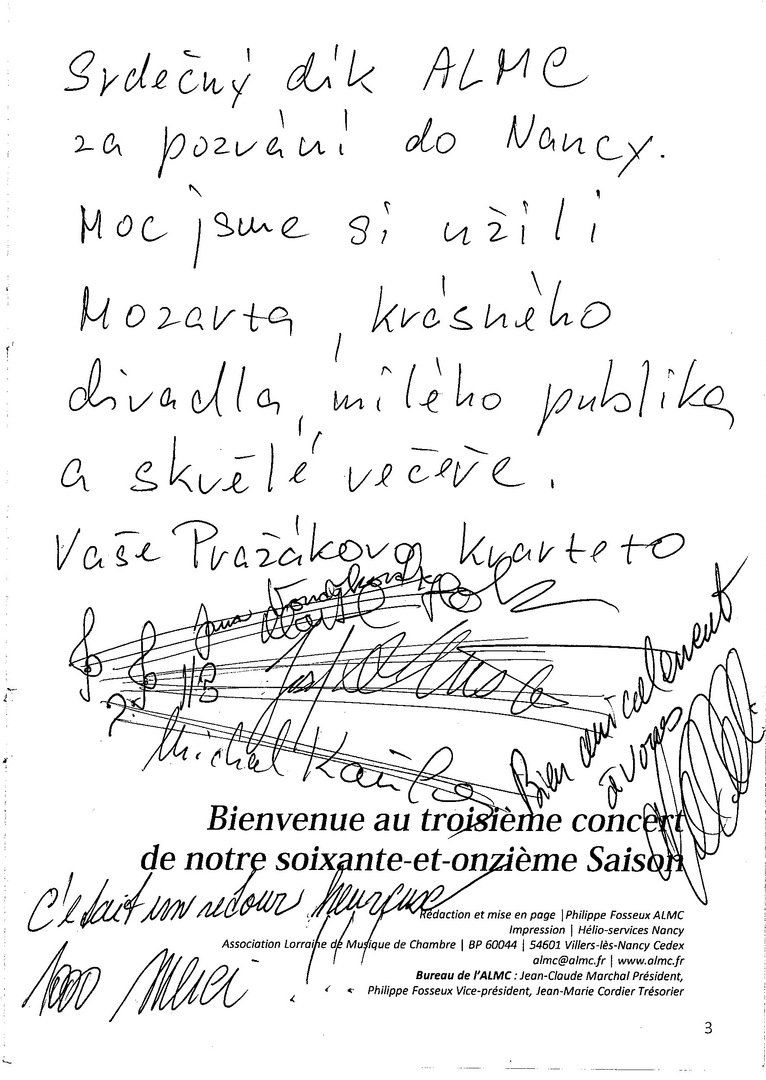 Srdečný dík ALMC
za pozvání do Nancy.
Moc jsme si užili
Mozarta, krásného
divadla, milého publika
a skvělé večeře.
Vaše Pražákovo kvarteto
Jana Vonášková
Josef Klusoň
Michal Kaňka
Bien amicalement
à vous
Bienvenue au troisième concert
de notre soixante-et-onzième Saison
C'était un retour heureux
!!!
1000 Merci
Rédaction et mise en page | Philippe Fosseux ALMC
Impression | Hélio-services Nancy
Association Lorraine de Musique de Chambre | BP 60044 | 54601 Villers-lès-Nancy Cedex
almc@almc.fr | www.almc.fr
Bureau de l'ALMC : Jean-Claude Marchal Président,
Philippe Fosseux Vice-président, Jean-Marie Cordier Trésorier
3